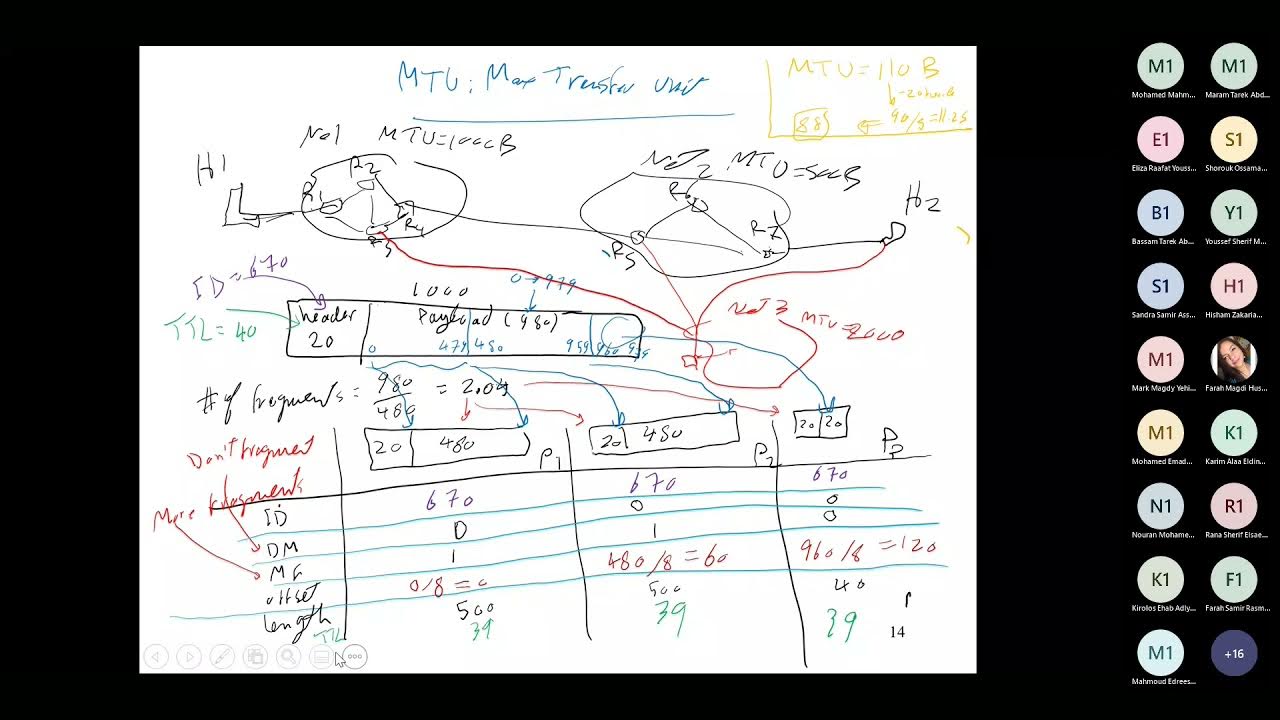 MTU: Max Transfer Unit
MTU = 110 B
b-20
88 ← 90/8=11.25
Net1 MTU=1000B
Net2 MTU=500B
H1
R1
R2
R3
R4
R5
R6
R7
H2
ID=670
TTL=40
1000
0→979
header
20
Payload (980)
0 479 480 959 960 979
Net 3
MTU=2000
# of fragments = 980/480 = 2.04
20 480
P1
20 480
P2
20 20
Don't fragment
More fragments
ID 670 670 670
DM 0 0 0
MF 1 1 0
offset 0/8=0 480/8=60 960/8=120
length 500 500 40
TTL 39 39 39
14
M1
Mohamed Mahm...
M1
Maram Tarek Abd...
E1
Eliza Raafat Youss...
S1
Shorouk Ossama...
B1
Bassam Tarek Ab...
Y1
Youssef Sherif M...
S1
Sandra Samir Ass...
H1
Hisham Zakaria...
M1
Mark Magdy Yehi...
Farah Magdi Hus...
M1
Mohamed Emad...
K1
Karim Alaa Eldin...
N1
Nouran Mohame...
R1
Rana Sherif Elsae...
K1
Kirolos Ehab Adly...
F1
Farah Samir Rasm...
M1
Mahmoud Edrees...
+16